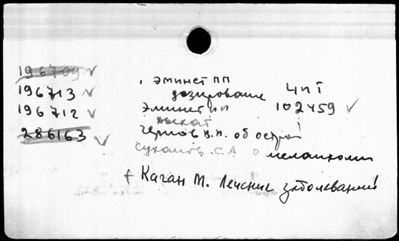 196709
196713
196712
286163
Эминет ПП
дозирование ЧИТ
Эминет ПП 102459
Чернов В.Н. об остро
Сухаит С.А. о меланхоми
+ Каган М. Лечение заболеваний